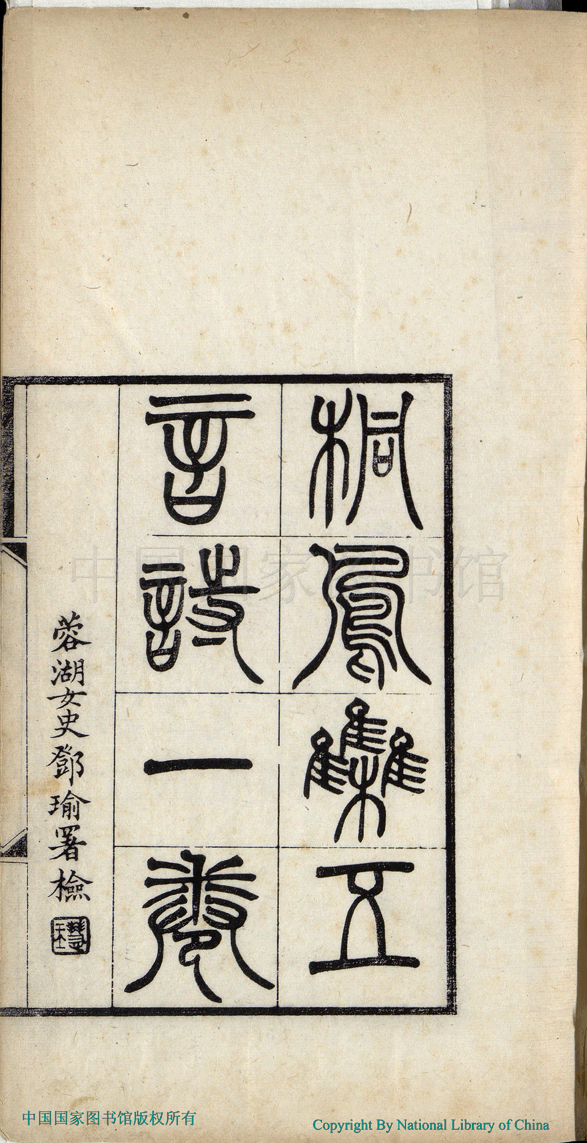 桐鳳集五
言詩一卷
蓉湖女史鄧瑜署檢
中国国家图书馆
中国国家图书馆版权所有
Copyright By National Library of China